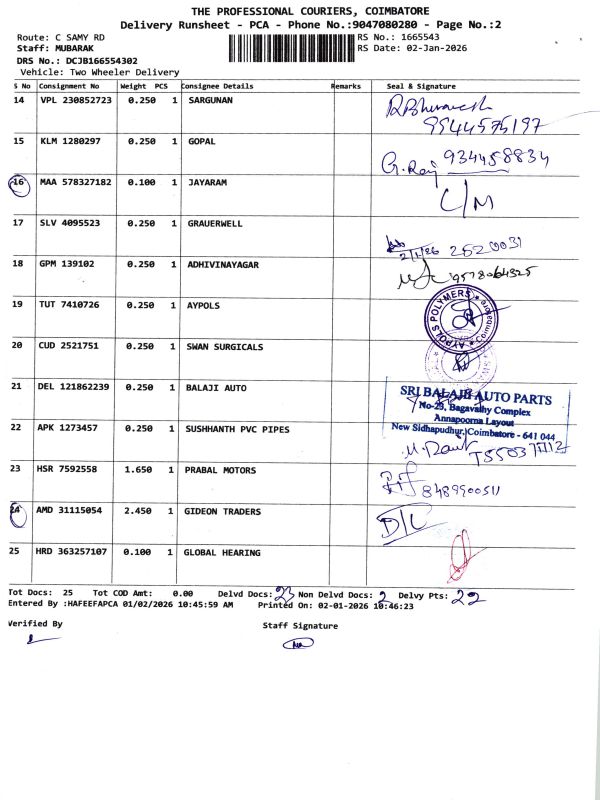 THE PROFESSIONAL COURIERS, COIMBATORE
Delivery Runsheet - PCA - Phone No.:9047080280 - Page No.:2
Route: C SAMY RD RS No.: 1665543
Staff: MUBARAK RS Date: 02-Jan-2026
DRS No.: DCJB166554302
Vehicle: Two Wheeler Delivery
S No Consignment No Weight PCS Consignee Details Remarks Seal & Signature
14 VPL 230852723 0.250 1 SARGUNAN
9944575197
15 KLM 1280297 0.250 1 GOPAL
G. Raj 934458834
16 MAA 578327182 0.100 1 JAYARAM C/M
17 SLV 4095523 0.250 1 GRAUERWELL
2/1/26 2520031
18 GPM 139102 0.250 1 ADHIVINAYAGAR
9578064325
19 TUT 7410726 0.250 1 AYPOLS
AYPOLS POLYMERS Coimbatore
20 CUD 2521751 0.250 1 SWAN SURGICALS
21 DEL 121862239 0.250 1 BALAJI AUTO
SRI BALAJI AUTO PARTS
No-29, Bagavathy Complex
Annapoorna Layout
New Sidhapudhur, Coimbatore - 641 044
22 APK 1273457 0.250 1 SUSHHANTH PVC PIPES
23 HSR 7592558 1.650 1 PRABAL MOTORS
8489900511
24 AMD 31115054 2.450 1 GIDEON TRADERS D/L
25 HRD 363257107 0.100 1 GLOBAL HEARING
Tot Docs: 25 Tot COD Amt: 0.00 Delvd Docs: 23 Non Delvd Docs: 2 Delvy Pts: 22
Entered By :HAFEEFAPCA 01/02/2026 10:45:59 AM Printed On: 02-01-2026 10:46:23
Verified By Staff Signature